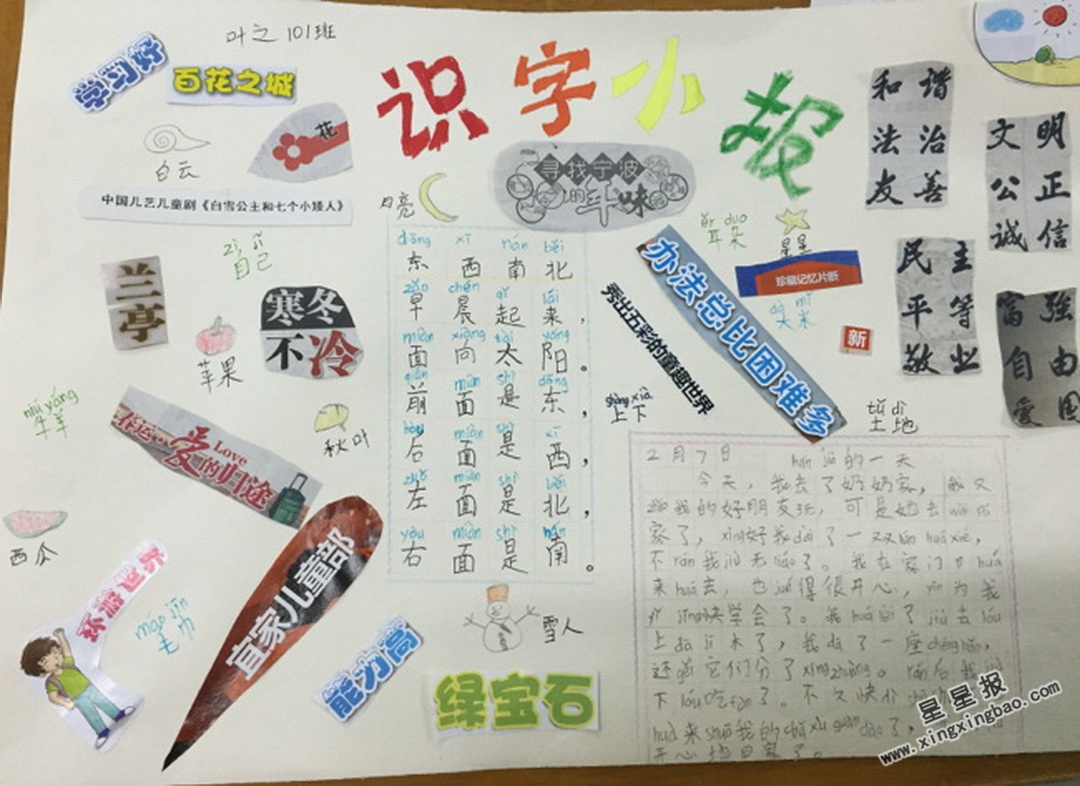 叶之 101班
识字小报
学习好
百花之城
花
白云
中国儿艺儿童剧《白雪公主和七个小矮人》
月亮
寻找宁波
的年味
ěr duo
耳朵
星星
和谐
法治
友善
文明
公正
诚信
民主
平等
敬业
富强
自由
爱国
zì jǐ
自己
兰亭
寒冬
不冷
苹果
办法总比困难多
珍藏记忆片断
dà mǐ
大米
新
秀出五彩的童趣世界
shàng xià
上下
tǔ dì
土地
niú yáng
牛羊
春运··爱的归途
Love
秋叶
西瓜
宜家儿童部
máo jīn
毛巾
能力高
绿宝石
雪人
dōng xī nán běi
东西南北
zǎo chén qǐ lái
早晨起来，
miàn xiàng tài yáng
面向太阳。
qián miàn shì dōng
前面是东，
hòu miàn shì xī
后面是西，
zuǒ miàn shì běi
左面是北，
yòu miàn shì nán
右面是南。
2月7日
的一天
今天，我去了奶奶家，我又
我的好朋友玩，可是她去
客了，xìng好我dài了一双liūn huá xié，
不rán我jiù无liáo了。我在家门口huá
来huá去，也jué得很开心，yīn为我
yǐ jīng快学会了。我huá lèi了jiù去lóu
上dā jī木了，我dā了一座chéng bǎo，
还gěi它们分了xíng zhuàng。rán后我jiù
下lóu吃fàn了。不久快
来jiē我的
开心地回家了。
星星报
www.xingxingbao.com